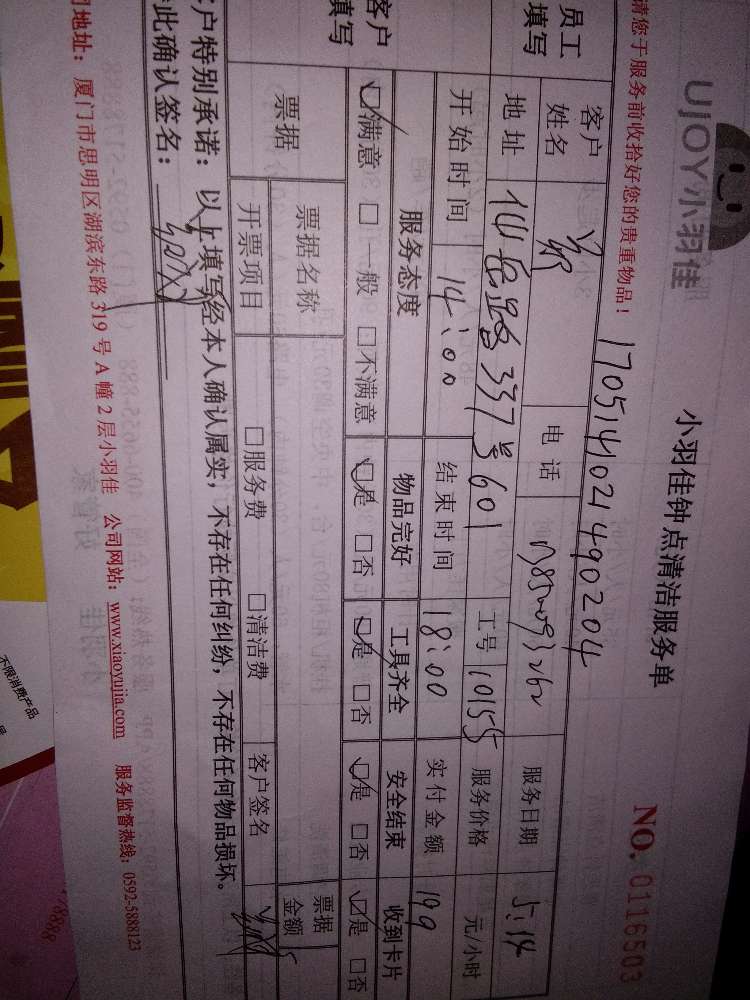 UJOY小羽佳
小羽佳钟点清洁服务单
NO. 0116503
请您于服务前收拾好您的贵重物品！
170514021490204
员工填写
客户姓名
电话
服务日期 5.14
地址 仙岳路337号601
工号 10155
服务价格 元/小时
开始时间 14:00
结束时间 18:00
实付金额 199
客户填写
服务态度 物品完好 工具齐全 安全结束 收到卡片
☑满意 □一般 □不满意 ☑是 □否 ☑是 □否 ☑是 □否 ☑是 □否
票据
票据名称
票据金额
开票项目 □服务费 □清洁费 客户签名
客户特别承诺：以上填写经本人确认属实，不存在任何纠纷，不存在任何物品损坏。
此确认签名：
司地址：厦门市思明区湖滨东路319号A幢2层小羽佳 公司网站：www.xiaoyujia.com 服务监督热线：0592-5888123
不限消费产品